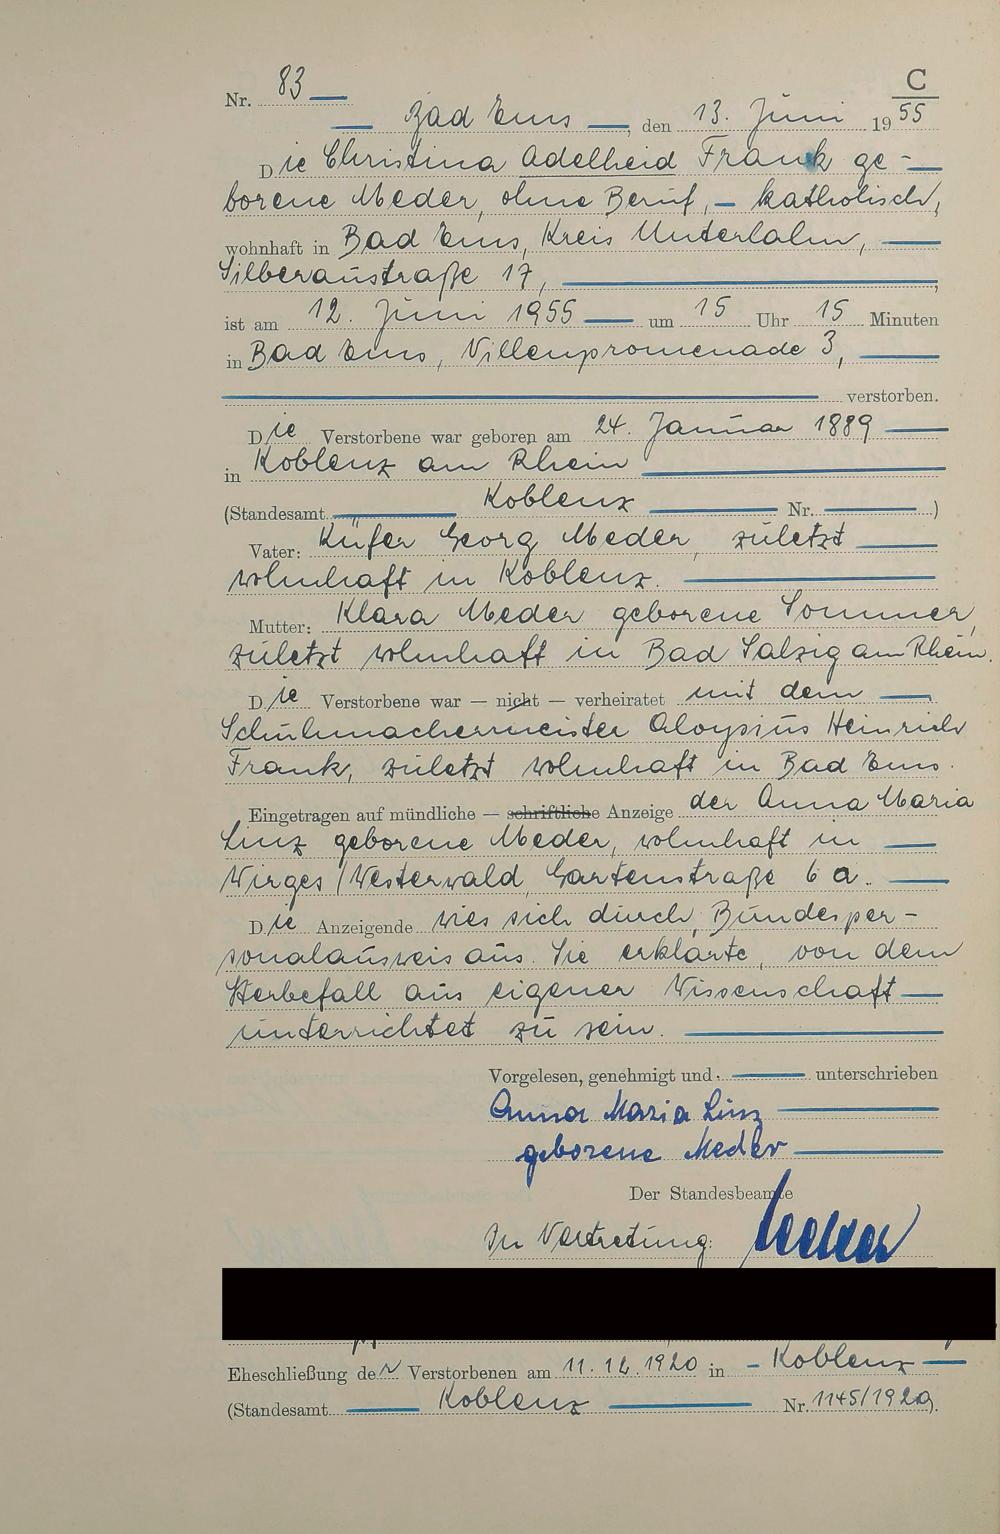 C
Nr. 83
Bad Ems, den 13. Juni 1955
Die Christina Adelheid Frank ge-
borene Meder, ohne Beruf, - katholisch,
wohnhaft in Bad Ems, Kreis Unterlahn,
Silberaustraße 17,
ist am 12. Juni 1955 um 15 Uhr 15 Minuten
in Bad Ems, Villenpromenade 3,
verstorben.
Die Verstorbene war geboren am 24. Januar 1889
in Koblenz am Rhein
(Standesamt Koblenz Nr. )
Vater: Küfer Georg Meder, zuletzt
wohnhaft in Koblenz.
Mutter: Klara Meder geborene Sommer,
zuletzt wohnhaft in Bad Salzig am Rhein.
Die Verstorbene war — nicht — verheiratet mit dem
Schuhmachermeister Aloysius Heinrich
Frank, zuletzt wohnhaft in Bad Ems.
Eingetragen auf mündliche — schriftliche Anzeige der Anna Maria
Linz geborene Meder, wohnhaft in
Wirges/Westerwald, Gartenstraße 6 a.
Die Anzeigende wies sich durch Bundesper-
sonalausweis aus. Sie erklärte, von dem
Sterbefall aus eigener Wissenschaft
unterrichtet zu sein.
Vorgelesen, genehmigt und unterschrieben
Anna Maria Linz
geborene Meder
Der Standesbeamte
In Vertretung:
Eheschließung der Verstorbenen am 11.12.1920 in - Koblenz -
(Standesamt Koblenz Nr. 1145/1920).